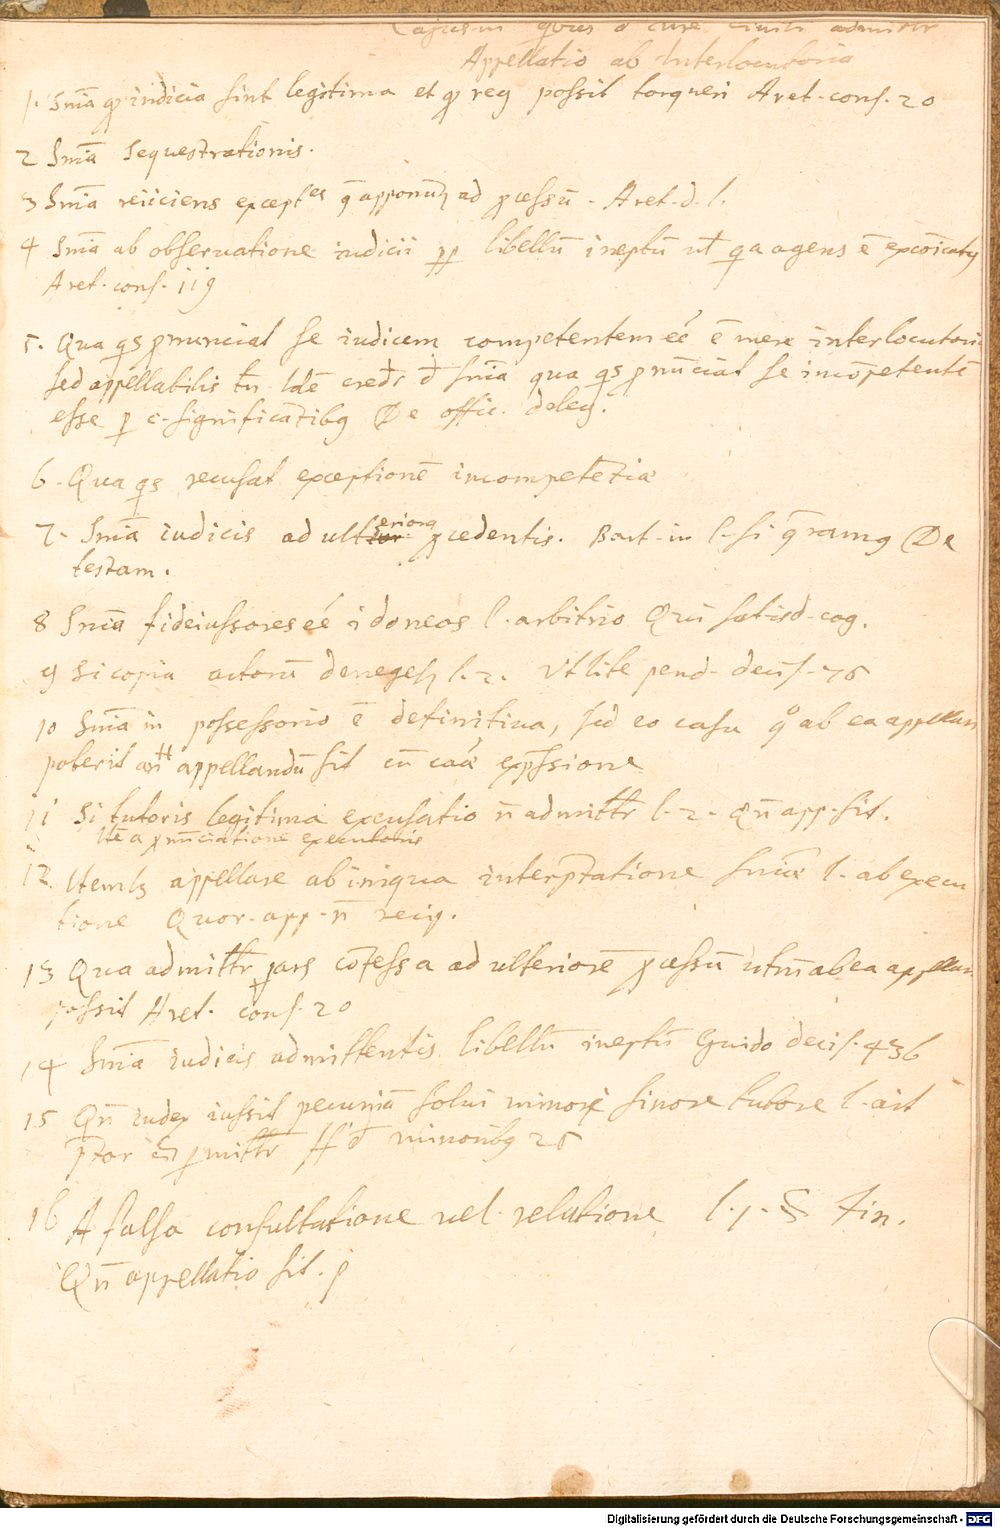 Casus in quibus de iure civili admittr
Appellatio ab Interlocutoria
1. Snia q indicia sint legitima et q reg possit torqueri Aret. cons. 20
2 Snia sequestrationis.
3 Snia reiiciens except.es q apponunt ad pcessū. Aret. d. l.
4 Snia ab obseruatione iudicii pp libellū ineptū ut qa agens ē excōicatg
Aret. cons. 119
5. Qua qs pnunciat se iudicem competentem eé ē mere interlocutoria
sed appellabilis tn. Idē credr d snia qua qs pnūciat se incōpetentē
esse p c. significātibg De offic. deleg.
6. Qua qs recusat exceptionē incompetētiæ
7. Snia iudicis ad ulteriora pcedentis. Bart. in l. si qramg De
testam.
8 Snia fideiussores eé idoneos l. arbitrio Qui satisd. cog.
9 Si copia actorū denegetr l. 2. Ut lite pend. decis. 76
10 Snia in possessorio ē definitiua, sed eo casu qo ab ea appellari
poterit an appellandū sit cū caæ expssione
11 Si tutoris legitima excusatio n admittr l. 2. Qn app. sit.
Ite a pnūciatione executoris
12. Item lz appellare ab iniqua interptatione sniæ l. ab execu
tione Quor. app. n recip.
13 Qua admittr pars cōfessa ad ulteriorē pcessū utn ab ea appellari
possit Aret. cons. 20
14 Snia iudicis admittentis libellū ineptū Guido decis. 436
15 Qn iudex iussit pecuniā solui minori sinoe tutore l. ait
ptor permittr ff d minoribg 25
16 A falsa consultatione uel relatione l. 1. § Fin.
Qn appellatio sit. j
Digitalisierung gefördert durch die Deutsche Forschungsgemeinschaft - DFG